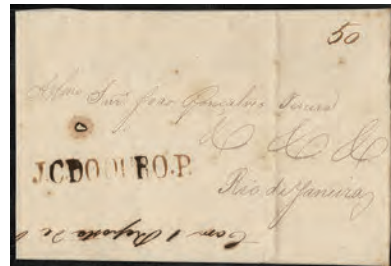 50
Illmo Snr. João Gonçalves Pereira
& & &
J.C.DO OURO.P.
Rio de Janeiro
Com 1